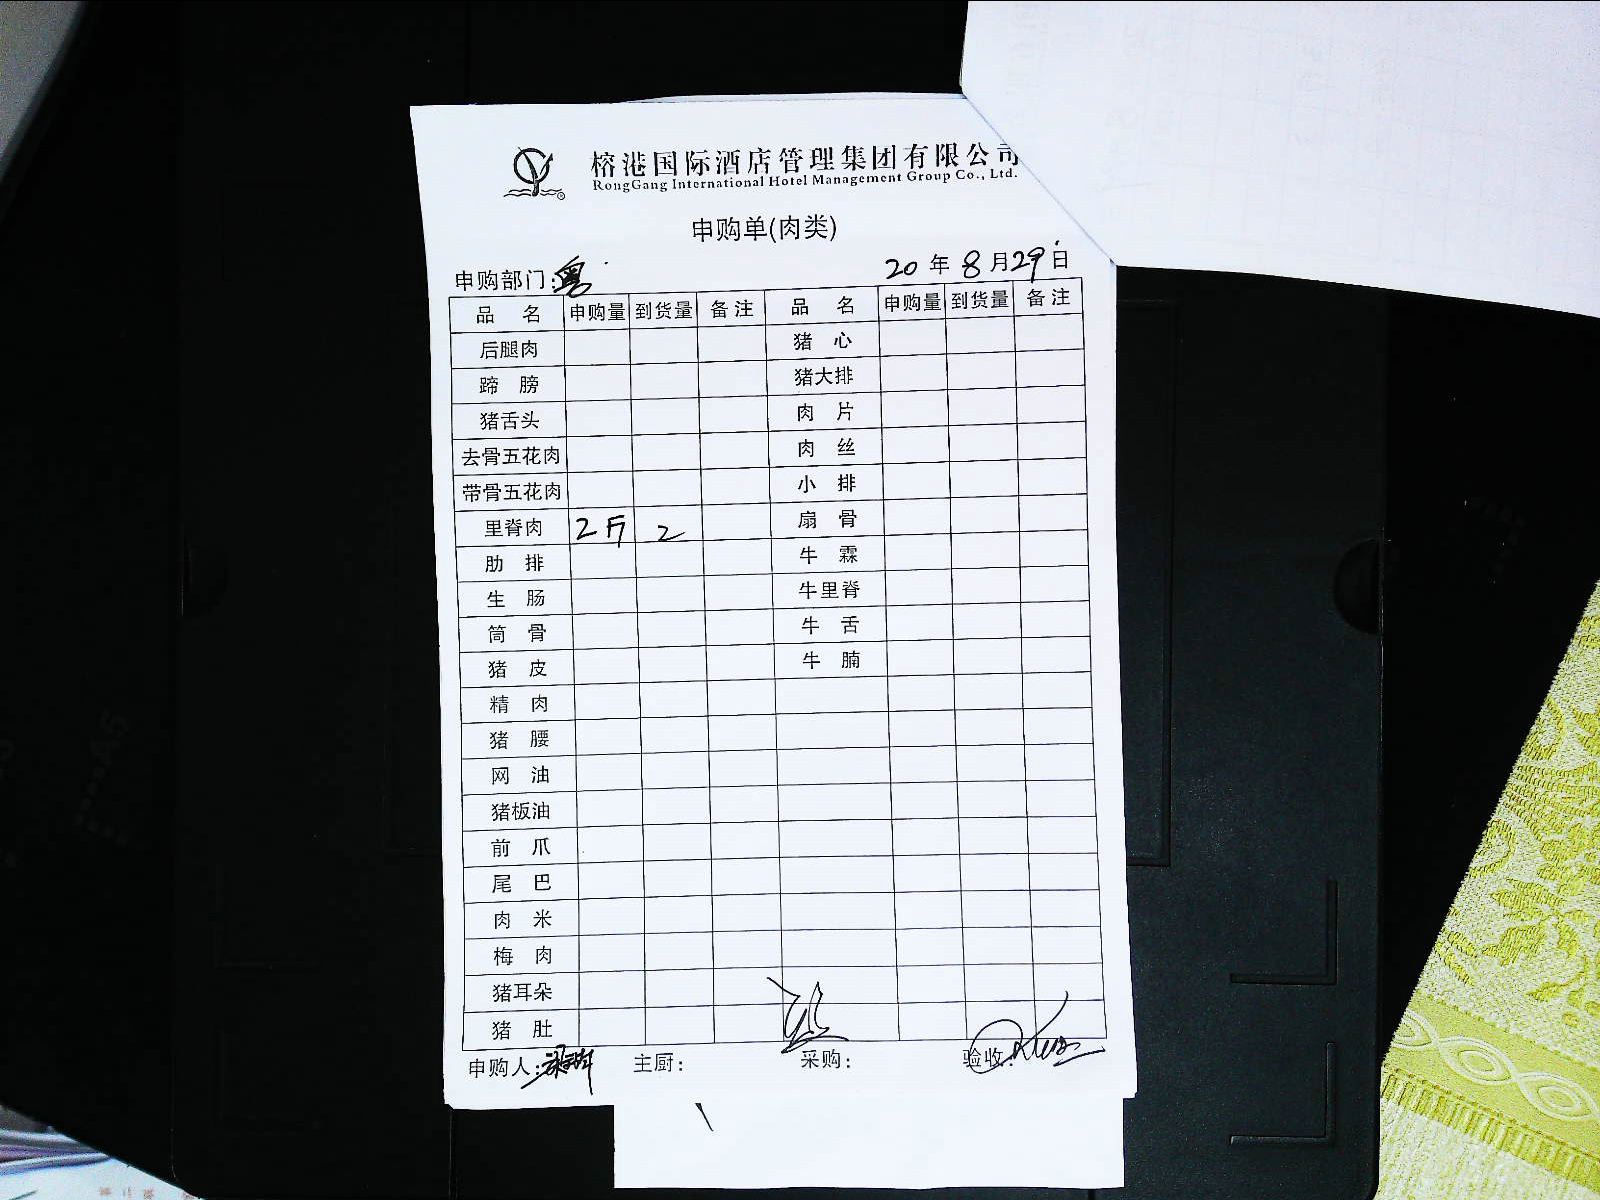 榕港国际酒店管理集团有限公司
RongGang International Hotel Management Group Co., Ltd.
申购单(肉类)
申购部门: 粤 20 年 8 月 29 日
品 名 申购量 到货量 备注 品 名 申购量 到货量 备注
后腿肉 猪 心
蹄 膀 猪大排
猪舌头 肉 片
去骨五花肉 肉 丝
带骨五花肉 小 排
里脊肉 2斤 2 扇 骨
肋 排 牛 霖
生 肠 牛里脊
筒 骨 牛 舌
猪 皮 牛 腩
精 肉
猪 腰
网 油
猪板油
前 爪
尾 巴
肉 米
梅 肉
猪耳朵
猪 肚
申购人: 主厨: 采购: 验收: